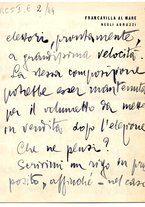 FRANCAVILLA AL MARE
NEGLI ABRUZZI
elevori, prontamente,
a grandissima velocità.
La stessa composizione
potrebbe esser mantenuta
per il volumetto da mettere
in vendita dopo l'elezione.
Che ne pensi?
Scrivimi un rigo in pro-
posito, affinché – nel caso